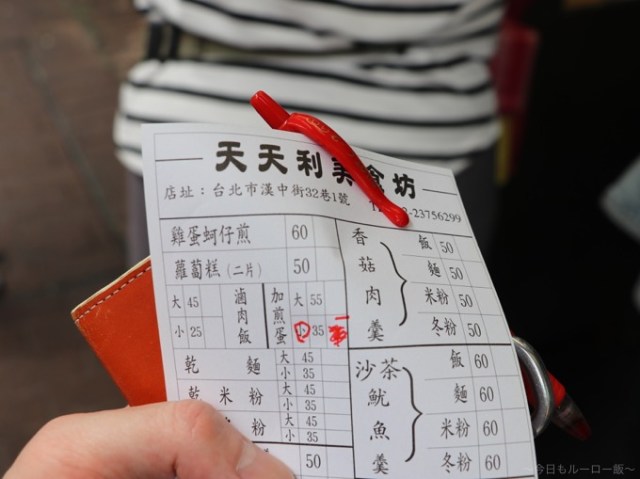 天天利美食坊
店址：台北市漢中街32巷1號 23756299
雞蛋蚵仔煎 60
蘿蔔糕（二片） 50
大 45 滷肉飯 加煎蛋 大 55
小 25 小 35
乾麵 大 45
小 35
乾米粉 大 45
小 35
大 45
小 35
50
香菇肉羹 飯 50
麵 50
米粉 50
冬粉 50
沙茶魷魚羹 飯 60
麵 60
米粉 60
冬粉 60
〜今日もルーロー飯〜